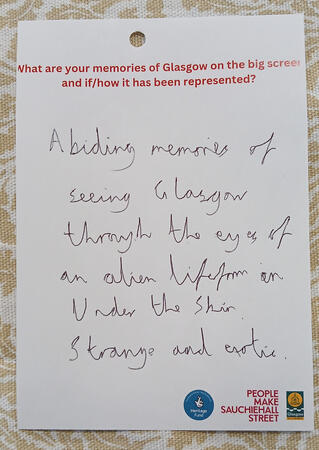 What are your memories of Glasgow on the big screen
and if/how it has been represented?
Abiding memories of
seeing Glasgow
through the eyes of
an alien lifeform in
Under the Skin.
Strange and exotic.
Heritage
Fund
PEOPLE
MAKE
SAUCHIEHALL
STREET
Glasgow